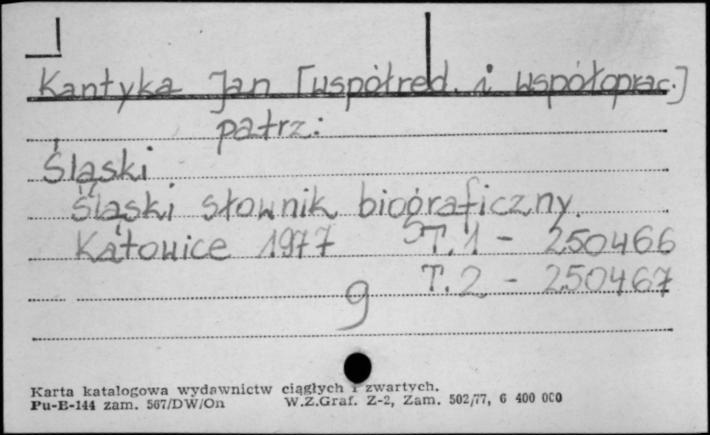 Kantyka Jan [współred. i współoprac.]
patrz:
Śląski
Śląski słownik biograficzny.
Katowice 1977 T.1 - 250466
T.2 - 250467
9
Karta katalogowa wydawnictw ciągłych i zwartych.
Pu-B-144 zam. 567/DW/On W.Z.Graf. Z-2, Zam. 502/77, 6 400 000